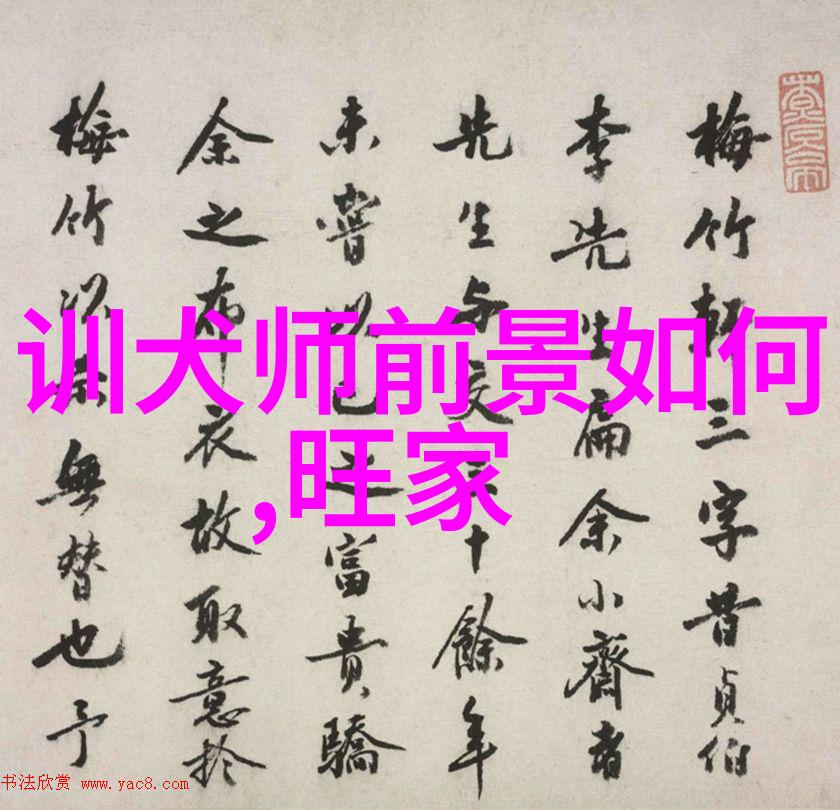 训犬师前景如何
,旺家
梅竹軒三字昔貞伯
李先生扁余小齋者
先生与交三十餘年
未嘗以己之富貴驕
余之布衣故取意於
梅竹無替也予
书法欣赏 www.yac8.com